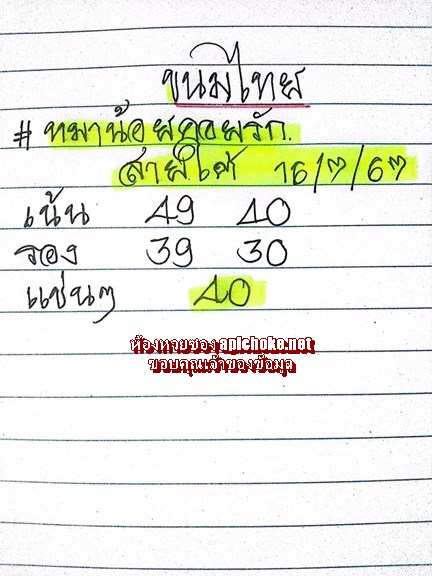 ขนมไทย
# หมาน้อยคอยรัก.
สายใต้ 16/7/63
เน้น 49 40
รอง 39 30
แช่นๆ 40
ห้องหวยซอง apichoke.net
ขอบคุณเจ้าของข้อมูล